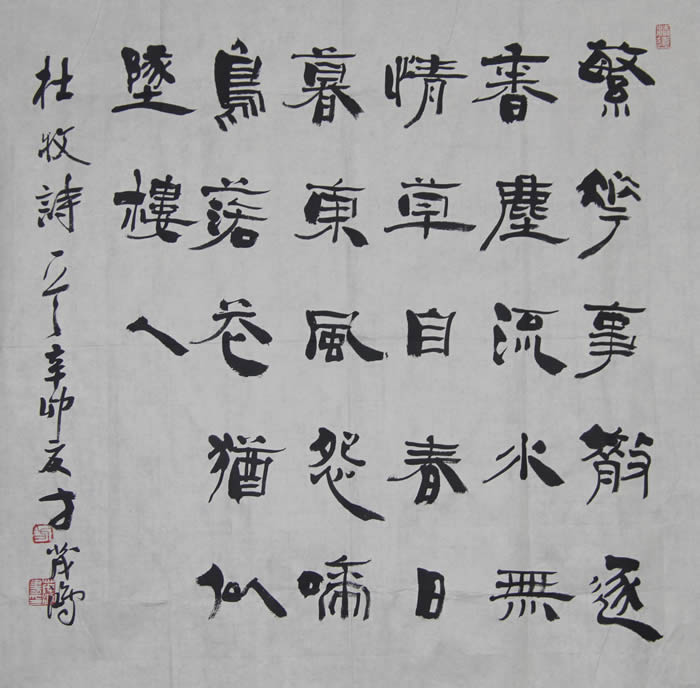 繁華事散逐
香塵流水無
情草自春日
暮東風怨啼
鳥落花猶似
墜樓人
杜牧詩 辛卯夏